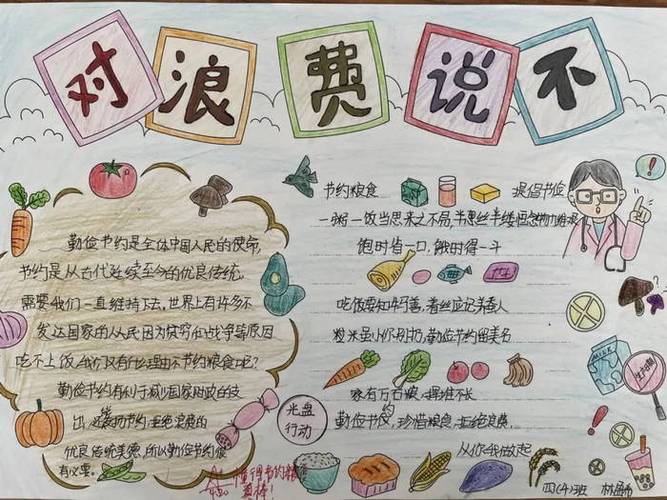 对浪费说不
勤俭节约是全体中国人民的使命,
节约是从古代延续至今的优良传统,
需要我们一直维持下去,世界上有许多不
发达国家的人民因为贫穷和战争等原因
吃不上饭,我们又有什么理由不节约粮食呢?
勤俭节约有利于减少国家财政的支
出,还发扬节约拒绝浪费的
优良传统美德,所以勤俭节约很
有必要。
节约粮食
提倡节俭
一粥一饭当思来之不易,半丝半缕恒念物力维艰
饱时省一口,饿时得一斗
吃饭要知牛马善,着丝应记养蚕人
粒米虽小仍别扔,勤俭节约留美名
家有万石粮,挥难不长
勤俭节约,珍惜粮食,拒绝浪费,
从你我做起
光盘
行动
MILK
四(4)班